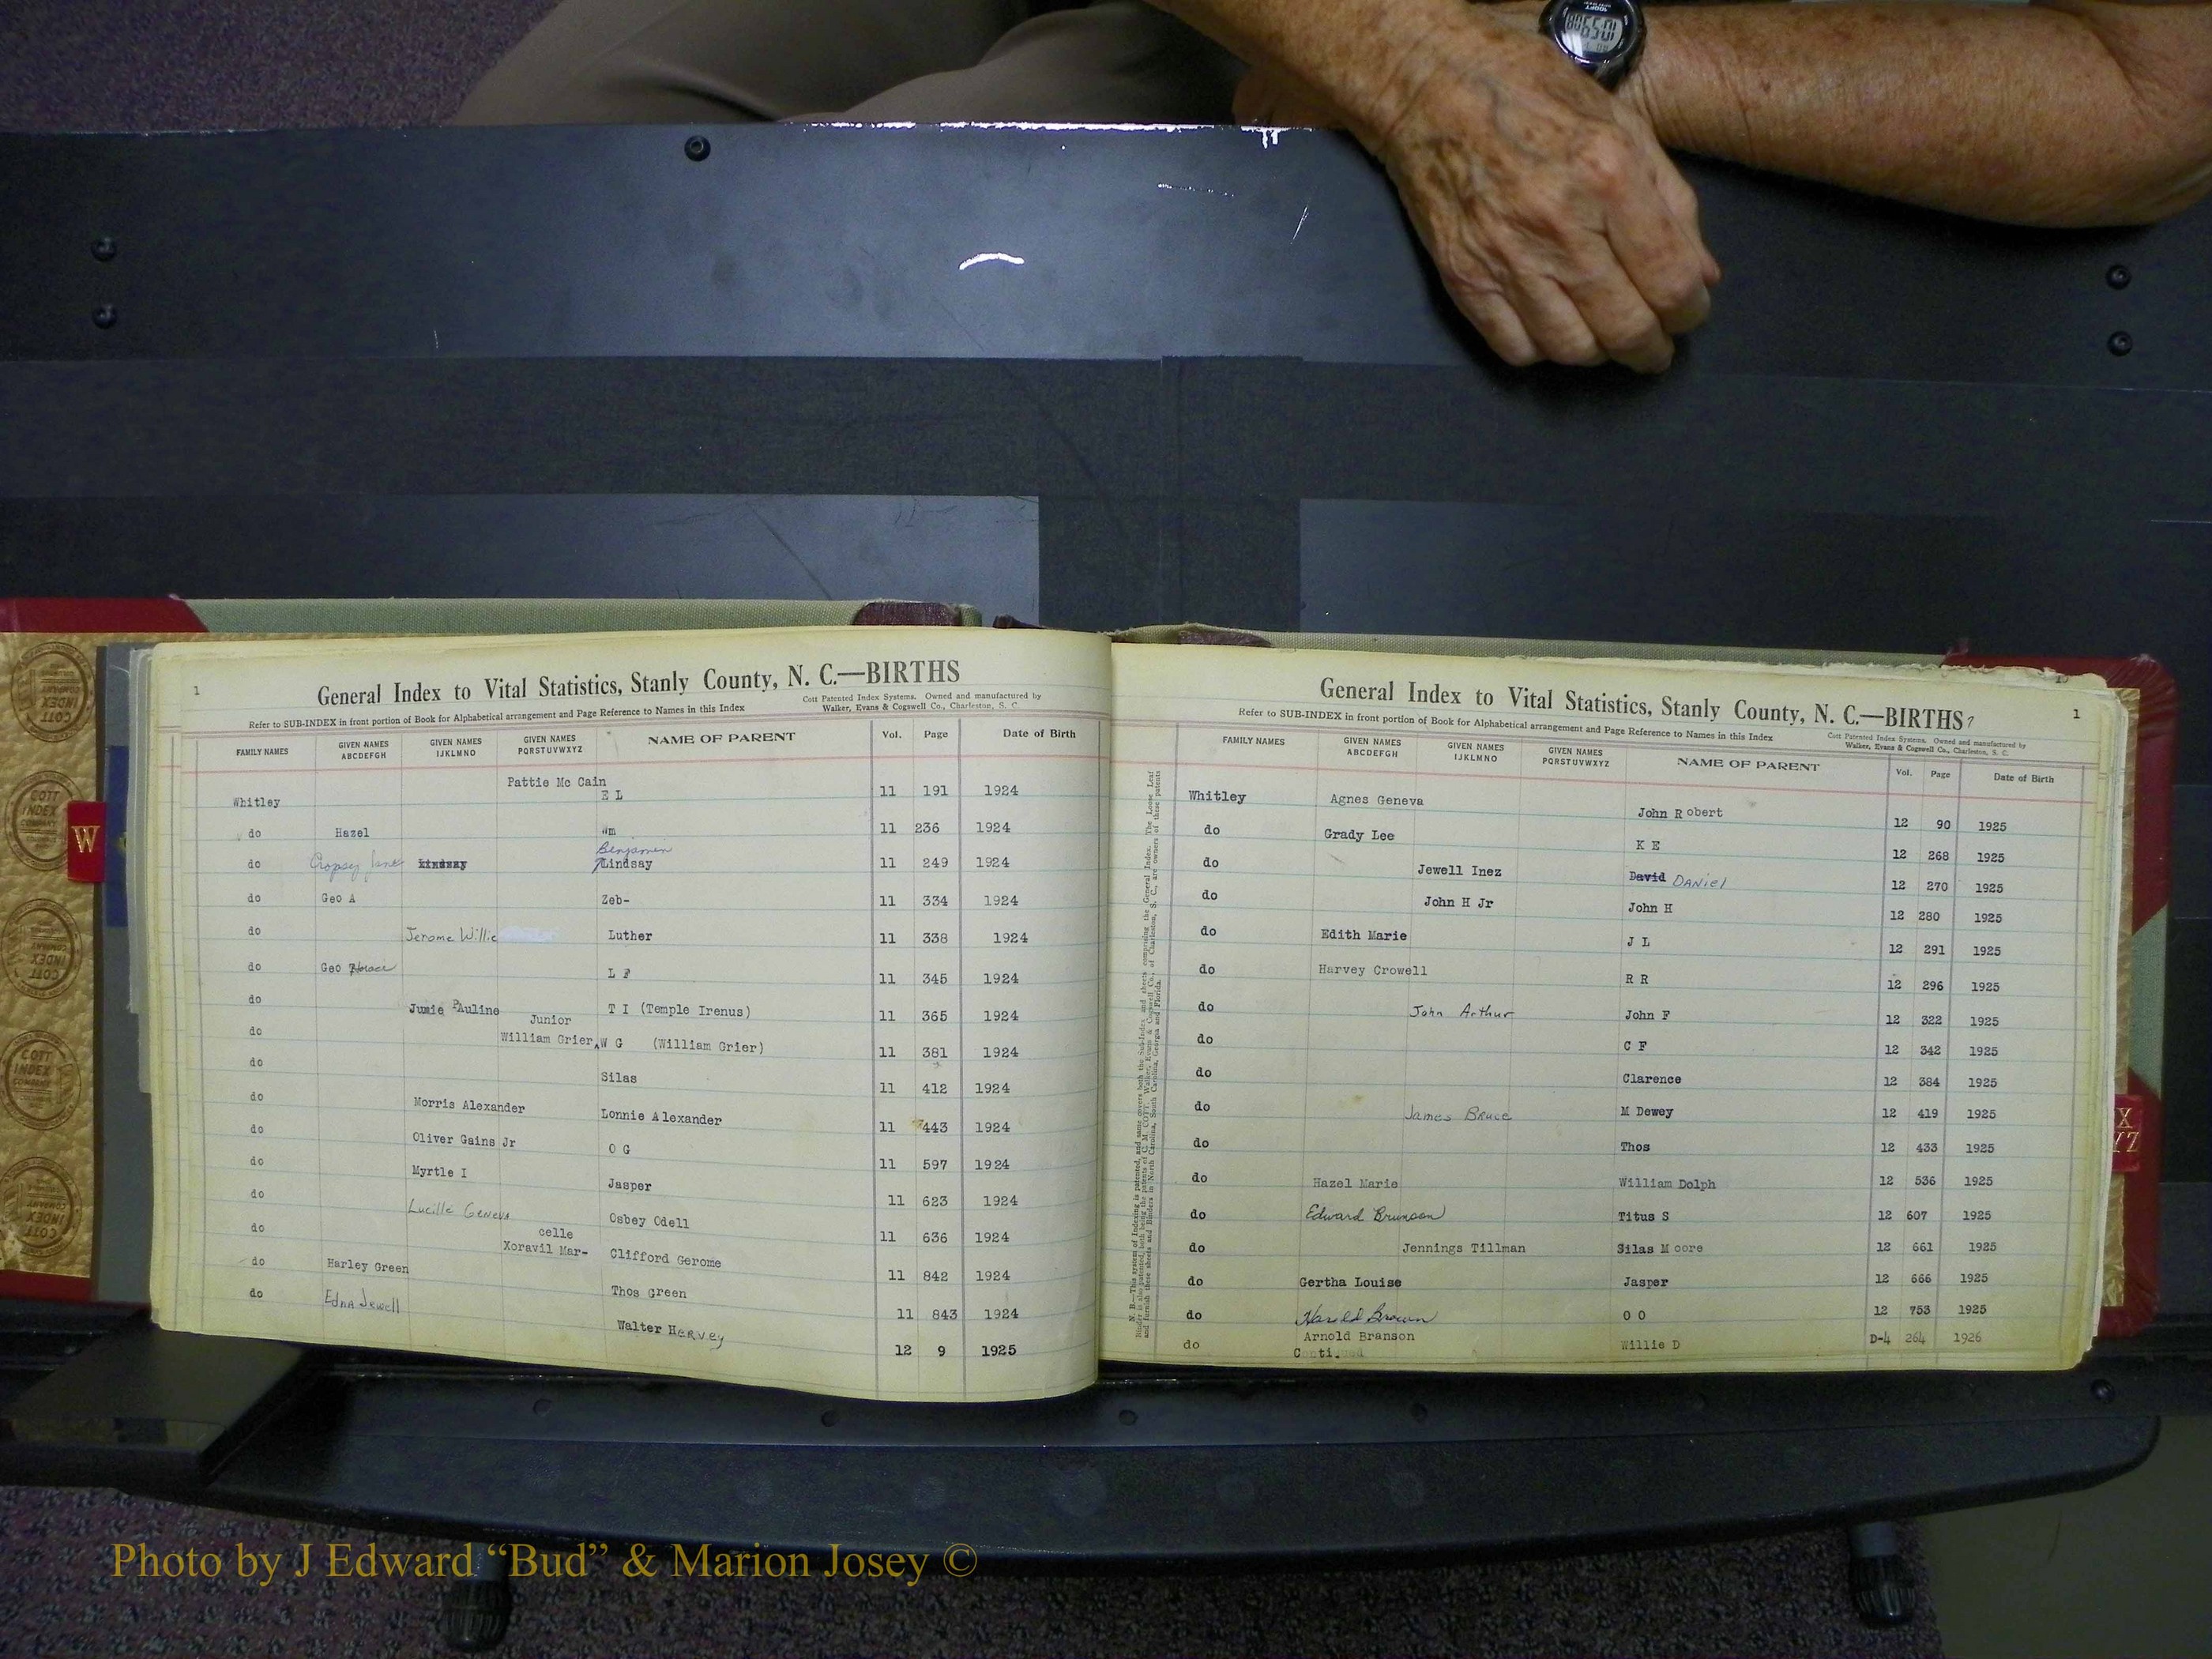 1
General Index to Vital Statistics, Stanly County, N. C.—BIRTHS
Refer to SUB-INDEX in front portion of Book for Alphabetical arrangement and Page Reference to Names in this Index
Cott Patented Index Systems. Owned and manufactured by
Walker, Evans & Cogswell Co., Charleston, S. C.
FAMILY NAMES GIVEN NAMES ABCDEFGH GIVEN NAMES IJKLMNO GIVEN NAMES PQRSTUVWXYZ NAME OF PARENT Vol. Page Date of Birth
Whitley Pattie Mc Cain E L 11 191 1924
do Hazel Wm 11 236 1924
do Jane Lindsay Benjamin Lindsay 11 249 1924
do Geo A Zeb- 11 334 1924
do Jerome Willie Luther 11 338 1924
do Geo Horace L F 11 345 1924
do Junie Pauline T I (Temple Irenus) 11 365 1924
do William Grier Junior W G (William Grier) 11 381 1924
do Silas 11 412 1924
do Morris Alexander Lonnie Alexander 11 443 1924
do Oliver Gains Jr O G 11 597 1924
do Myrtle I Jasper 11 623 1924
do Lucille Geneva Osbey Odell 11 636 1924
do Xoravil Mar-celle Clifford Gerome 11 842 1924
do Harley Green Thos Green 11 843 1924
do Edna Jewell Walter Hervey 12 9 1925
W
General Index to Vital Statistics, Stanly County, N. C.—BIRTHS
1
Refer to SUB-INDEX in front portion of Book for Alphabetical arrangement and Page Reference to Names in this Index
Cott Patented Index Systems. Owned and manufactured by
Walker, Evans & Cogswell Co., Charleston, S. C.
FAMILY NAMES GIVEN NAMES ABCDEFGH GIVEN NAMES IJKLMNO GIVEN NAMES PQRSTUVWXYZ NAME OF PARENT Vol. Page Date of Birth
Whitley Agnes Geneva John Robert 12 90 1925
do Grady Lee K E 12 268 1925
do Jewell Inez David DANiEl 12 270 1925
do John H Jr John H 12 280 1925
do Edith Marie J L 12 291 1925
do Harvey Crowell R R 12 296 1925
do John Arthur John F 12 322 1925
do C F 12 342 1925
do Clarence 12 384 1925
do James Bruce M Dewey 12 419 1925
do Thos 12 433 1925
do Hazel Marie William Dolph 12 536 1925
do Edward Brunson Titus S 12 607 1925
do Jennings Tillman Silas Moore 12 661 1925
do Gertha Louise Jasper 12 666 1925
do Harold Brown O O 12 753 1925
do Arnold Branson Willie D D-4 264 1926
X
YZ
COTT INDEX COMPANY
Photo by J Edward “Bud” & Marion Josey ©